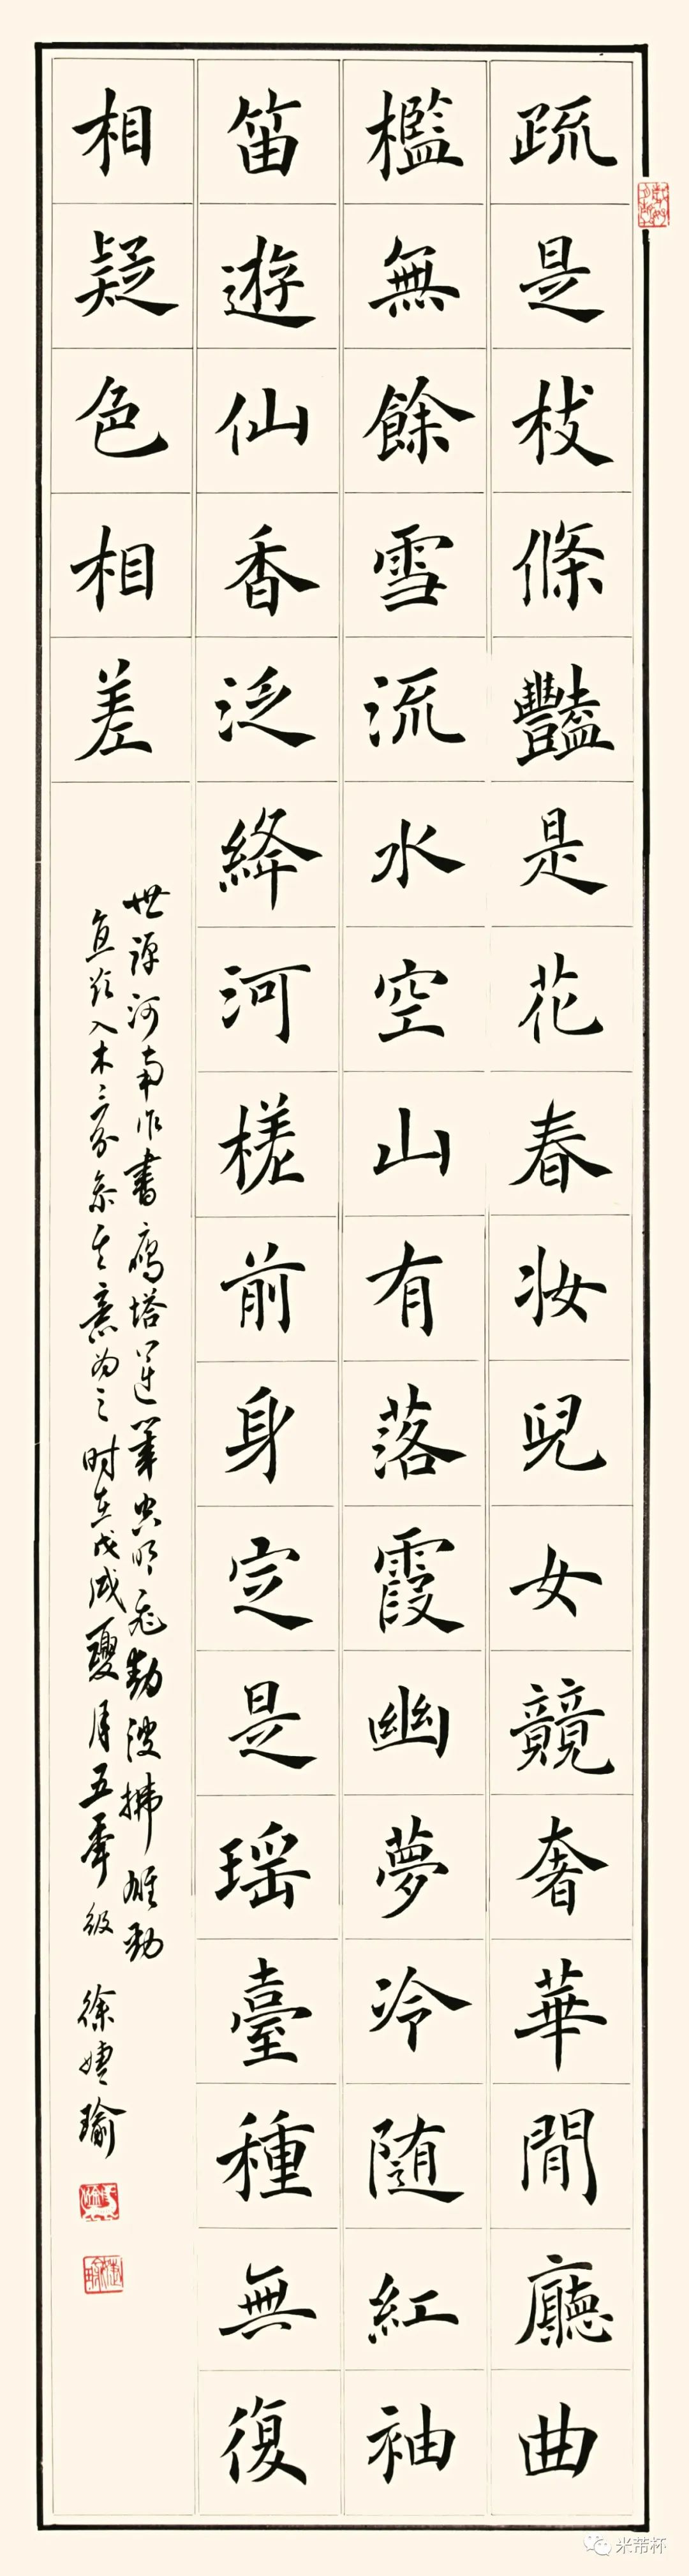 疏是枝條豔是花春妝兒女競奢華閒廳曲
檻無餘雪流水空山有落霞幽夢冷隨紅袖
笛遊仙香泛絳河槎前身定是瑶臺種無復
相疑色相差
世 河南作書 塔運筆空明飛動波拂雄勁
直欲入木三分 其意为之时在戊戌夏月五年级 徐婕瑜
米芾杯